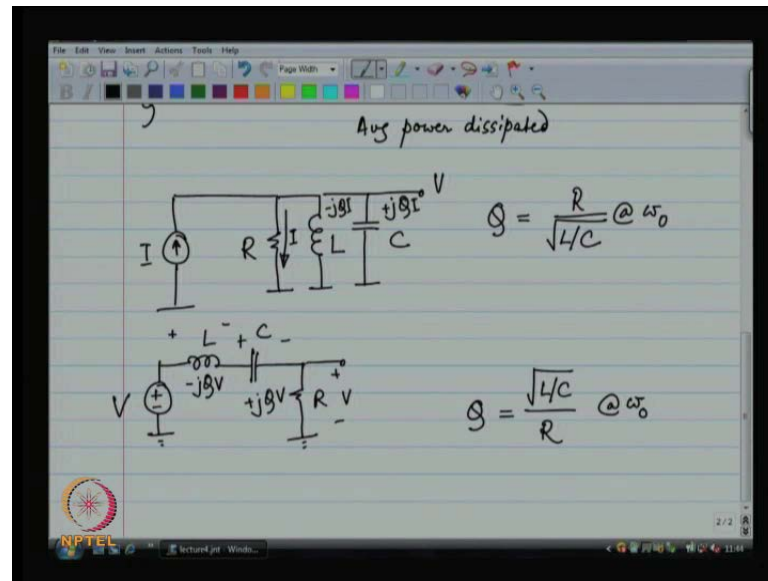 File Edit View Insert Actions Tools Help
Page Width
B I
Avg power dissipated
V
I R I -jQI L +jQI C
Q = R / √L/C @ ω₀
+ L - + C -
V + - -jQV +jQV R + V -
Q = √L/C / R @ ω₀
2 / 2
NPTEL
lecture4.jnt - Windo...
11:44